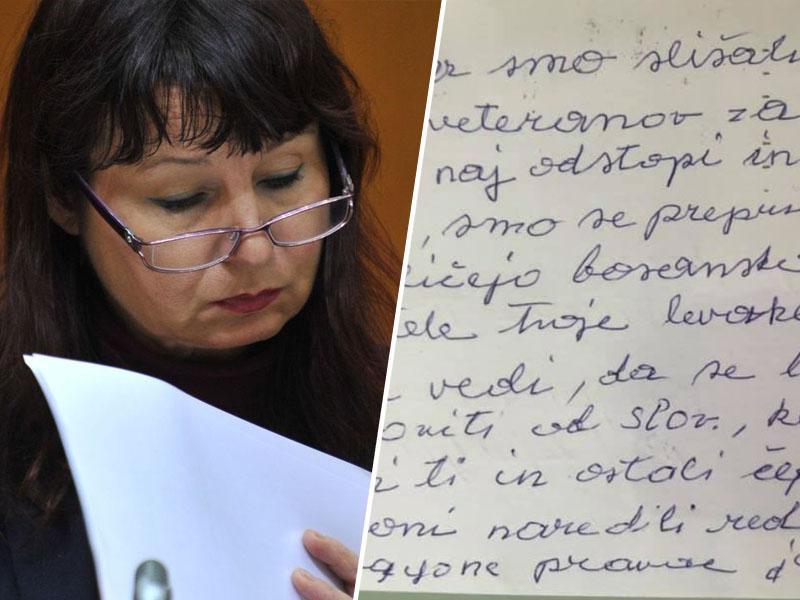 smo slišali
veteranov za
naj odstopi in
, smo se prepri
ičejo bosansk
tvoje levosk
vedi, da se
oniti od slov., k
ti in ostali čep
oni naredili red